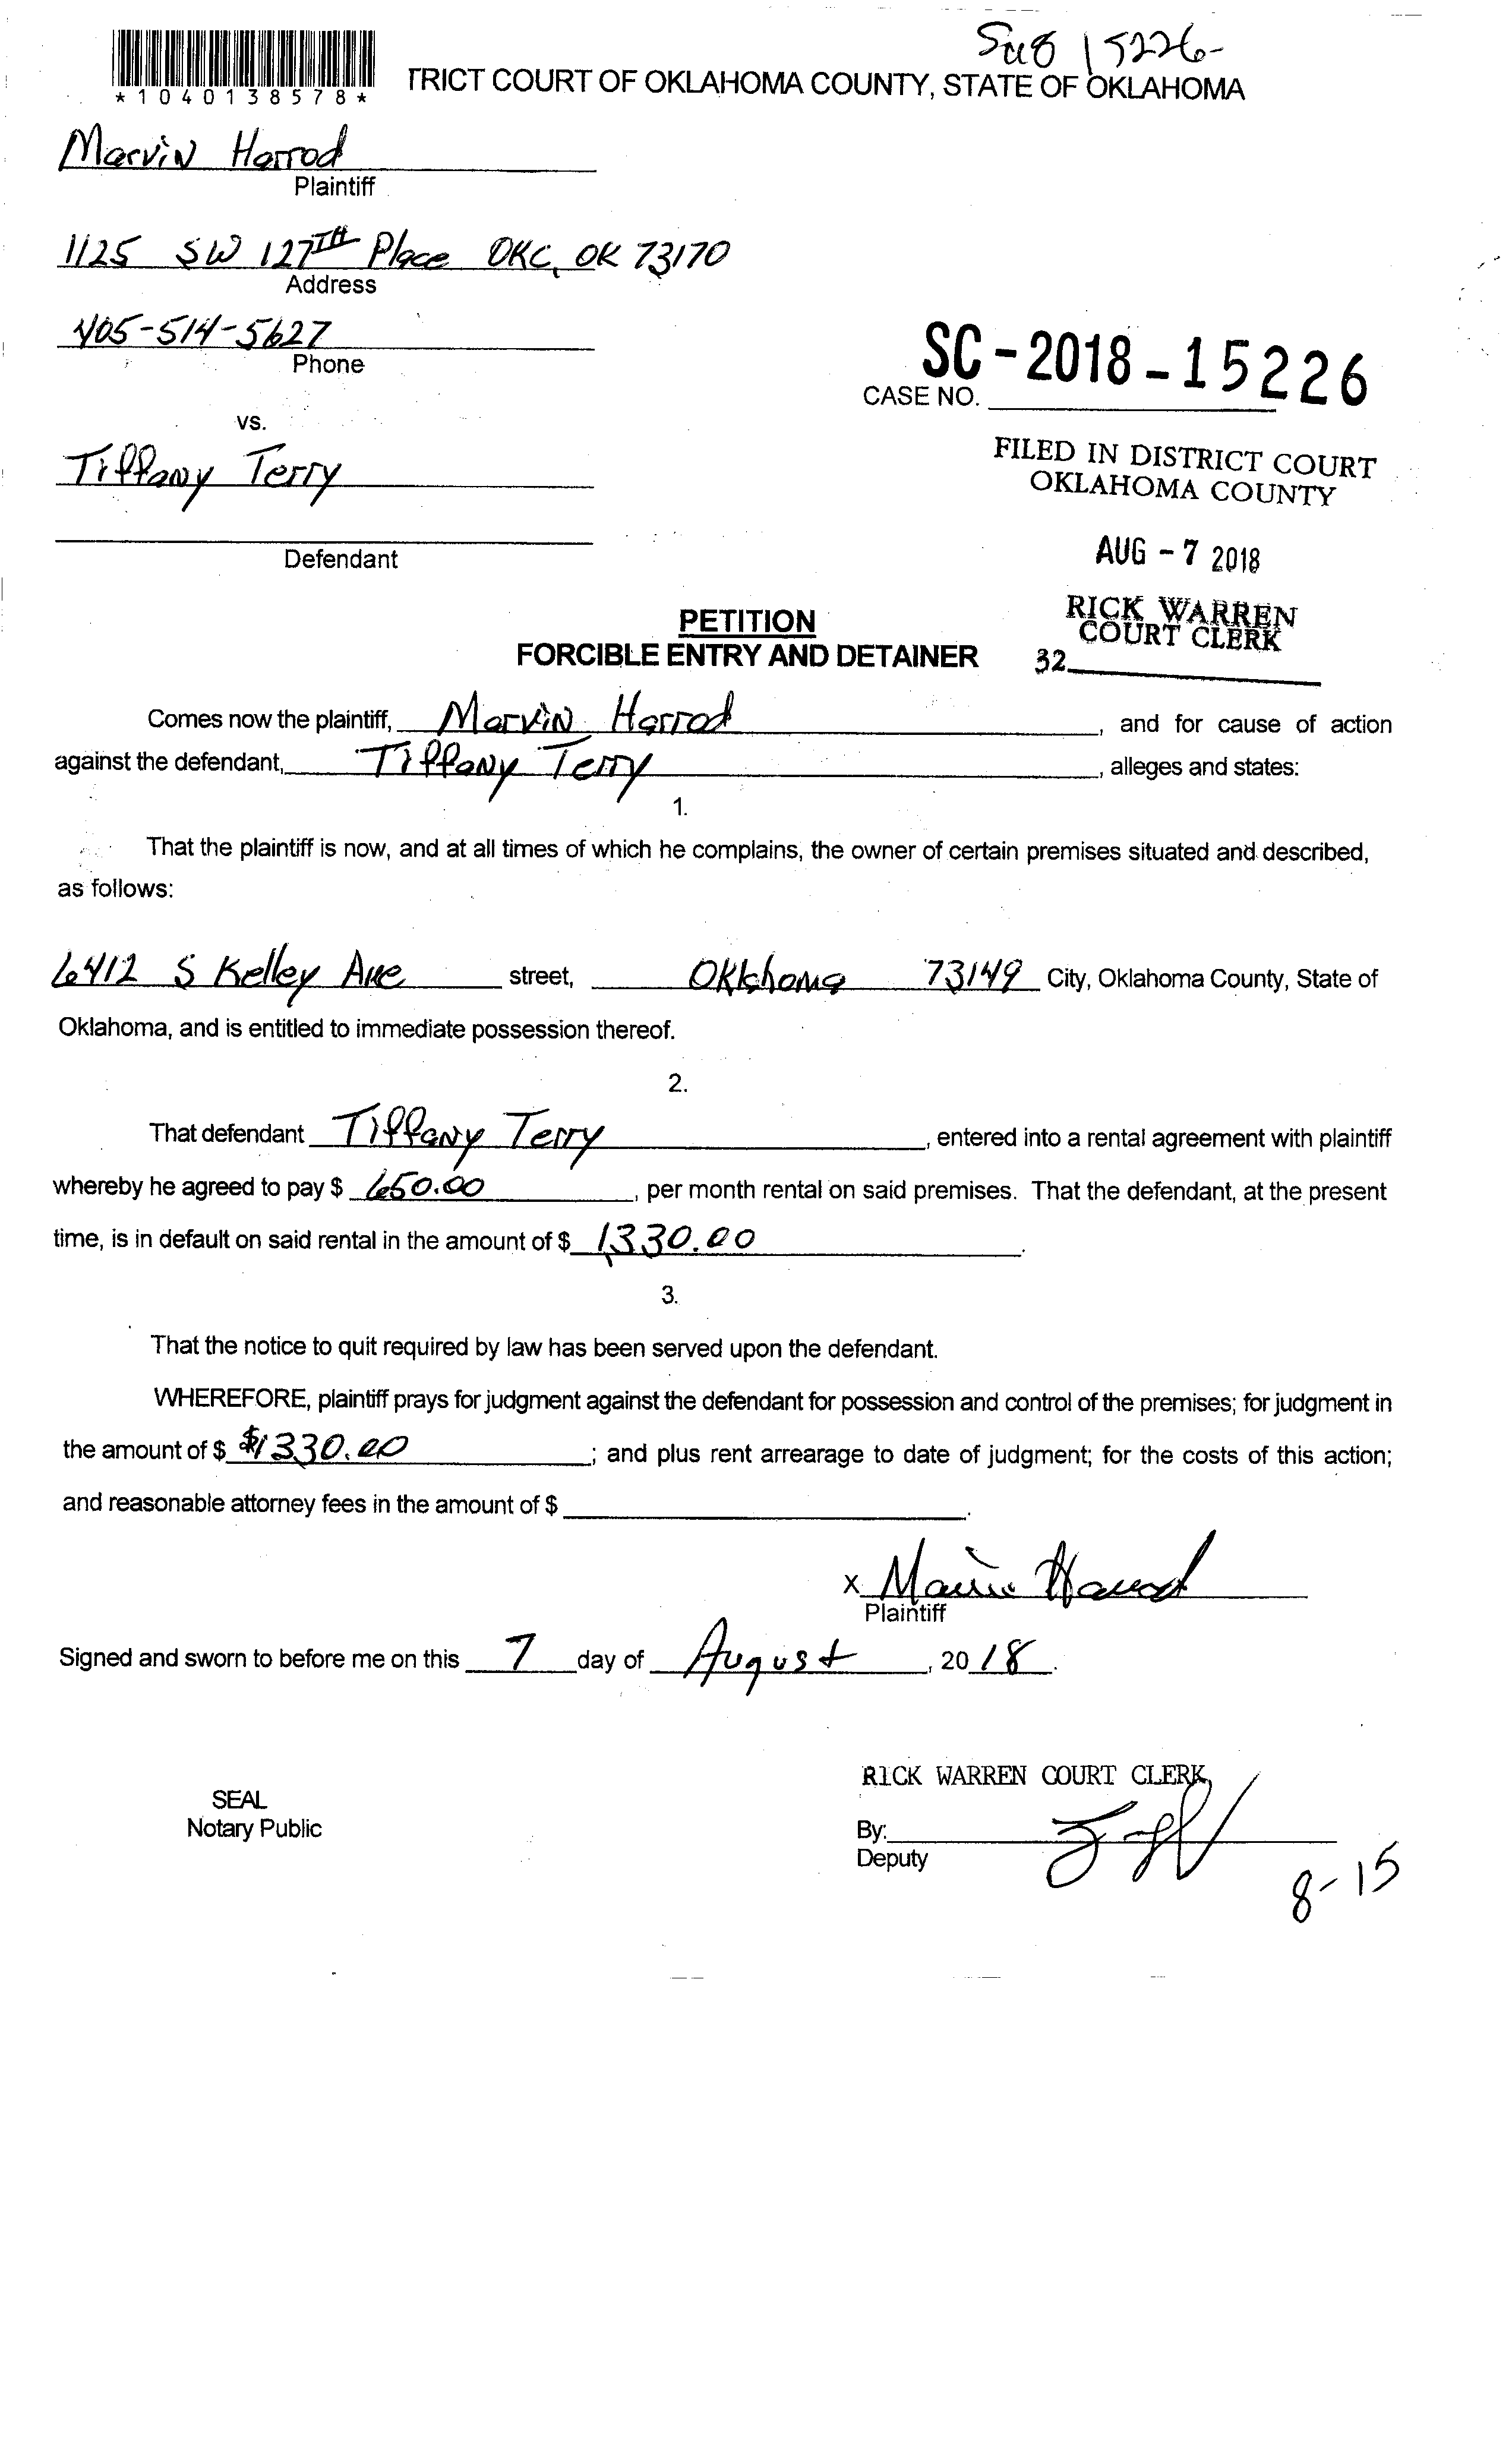 Sug 15226-
*1040138578*
TRICT COURT OF OKLAHOMA COUNTY, STATE OF OKLAHOMA
Marvin Harrod
Plaintiff
1125 SW 127TH Place OKC, OK 73170
Address
405-514-5627
Phone
SC-2018-15226
CASE NO.
vs.
FILED IN DISTRICT COURT
OKLAHOMA COUNTY
Tiffany Terry
AUG - 7 2018
Defendant
RICK WARREN
COURT CLERK
32
PETITION
FORCIBLE ENTRY AND DETAINER
Comes now the plaintiff, Marvin Harrod, and for cause of action
against the defendant, Tiffany Terry, alleges and states:
1.
That the plaintiff is now, and at all times of which he complains, the owner of certain premises situated and described,
as follows:
6412 S Kelley Ave street, Oklahoma 73149 City, Oklahoma County, State of
Oklahoma, and is entitled to immediate possession thereof.
2.
That defendant Tiffany Terry, entered into a rental agreement with plaintiff
whereby he agreed to pay $ 650.00, per month rental on said premises. That the defendant, at the present
time, is in default on said rental in the amount of $ 1,330.00.
3.
That the notice to quit required by law has been served upon the defendant.
WHEREFORE, plaintiff prays for judgment against the defendant for possession and control of the premises; for judgment in
the amount of $ $1330.00; and plus rent arrearage to date of judgment; for the costs of this action;
and reasonable attorney fees in the amount of $ .
X Marvin Harrod
Plaintiff
Signed and sworn to before me on this 7 day of August, 2018.
RICK WARREN COURT CLERK
SEAL
Notary Public
By:
Deputy
8-15